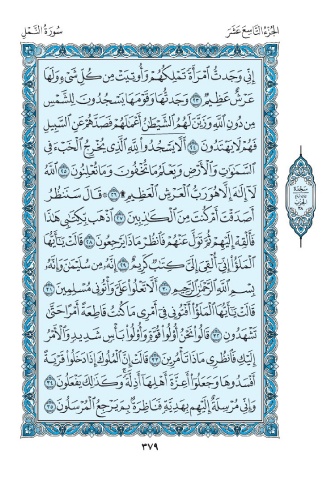 الجُزْءُ التَّاسِعَ عَشَرَ
سُورَةُ النَّمْلِ
إِنِّي وَجَدتُّ ٱمْرَأَةً تَمْلِكُهُمْ وَأُوتِيَتْ مِن كُلِّ شَىْءٍ وَلَهَا
عَرْشٌ عَظِيمٌ ٢٣ وَجَدتُّهَا وَقَوْمَهَا يَسْجُدُونَ لِلشَّمْسِ
مِن دُونِ ٱللَّهِ وَزَيَّنَ لَهُمُ ٱلشَّيْطَٰنُ أَعْمَٰلَهُمْ فَصَدَّهُمْ عَنِ ٱلسَّبِيلِ
فَهُمْ لَا يَهْتَدُونَ ٢٤ أَلَّا يَسْجُدُوا۟ لِلَّهِ ٱلَّذِى يُخْرِجُ ٱلْخَبْءَ فِى
ٱلسَّمَٰوَٰتِ وَٱلْأَرْضِ وَيَعْلَمُ مَا تُخْفُونَ وَمَا تُعْلِنُونَ ٢٥ ٱللَّهُ
لَآ إِلَٰهَ إِلَّا هُوَ رَبُّ ٱلْعَرْشِ ٱلْعَظِيمِ ۩ ٢٦ ۞ قَالَ سَنَنظُرُ
أَصَدَقْتَ أَمْ كُنتَ مِنَ ٱلْكَٰذِبِينَ ٢٧ ٱذْهَب بِّكِتَٰبِى هَٰذَا
فَأَلْقِهْ إِلَيْهِمْ ثُمَّ تَوَلَّ عَنْهُمْ فَٱنظُرْ مَاذَا يَرْجِعُونَ ٢٨ قَالَتْ يَٰٓأَيُّهَا
ٱلْمَلَؤُا۟ إِنِّىٓ أُلْقِىَ إِلَىَّ كِتَٰبٌ كَرِيمٌ ٢٩ إِنَّهُۥ مِن سُلَيْمَٰنَ وَإِنَّهُۥ
بِسْمِ ٱللَّهِ ٱلرَّحْمَٰنِ ٱلرَّحِيمِ ٣٠ أَلَّا تَعْلُوا۟ عَلَىَّ وَأْتُونِى مُسْلِمِينَ ٣١
قَالَتْ يَٰٓأَيُّهَا ٱلْمَلَؤُا۟ أَفْتُونِى فِىٓ أَمْرِى مَا كُنتُ قَاطِعَةً أَمْرًا حَتَّىٰ
تَشْهَدُونِ ٣٢ قَالُوا۟ نَحْنُ أُو۟لُوا۟ قُوَّةٍ وَأُو۟لُوا۟ بَأْسٍ شَدِيدٍ وَٱلْأَمْرُ
إِلَيْكِ فَٱنظُرِى مَاذَا تَأْمُرِينَ ٣٣ قَالَتْ إِنَّ ٱلْمُلُوكَ إِذَا دَخَلُوا۟ قَرْيَةً
أَفْسَدُوهَا وَجَعَلُوٓا۟ أَعِزَّةَ أَهْلِهَآ أَذِلَّةً ۖ وَكَذَٰلِكَ يَفْعَلُونَ ٣٤
وَإِنِّى مُرْسِلَةٌ إِلَيْهِم بِهَدِيَّةٍ فَنَاظِرَةٌۢ بِمَ يَرْجِعُ ٱلْمُرْسَلُونَ ٣٥
٣٧٩